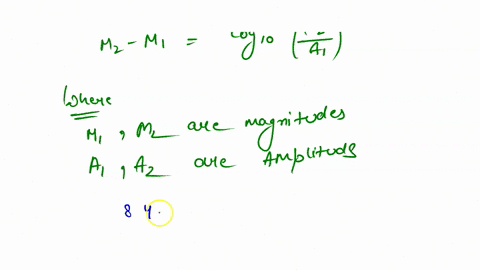 M2 - M1 = log10 ( / A1)
Where
M1 , M2 are magnitudes
A1 , A2 are AMplituds
8 4